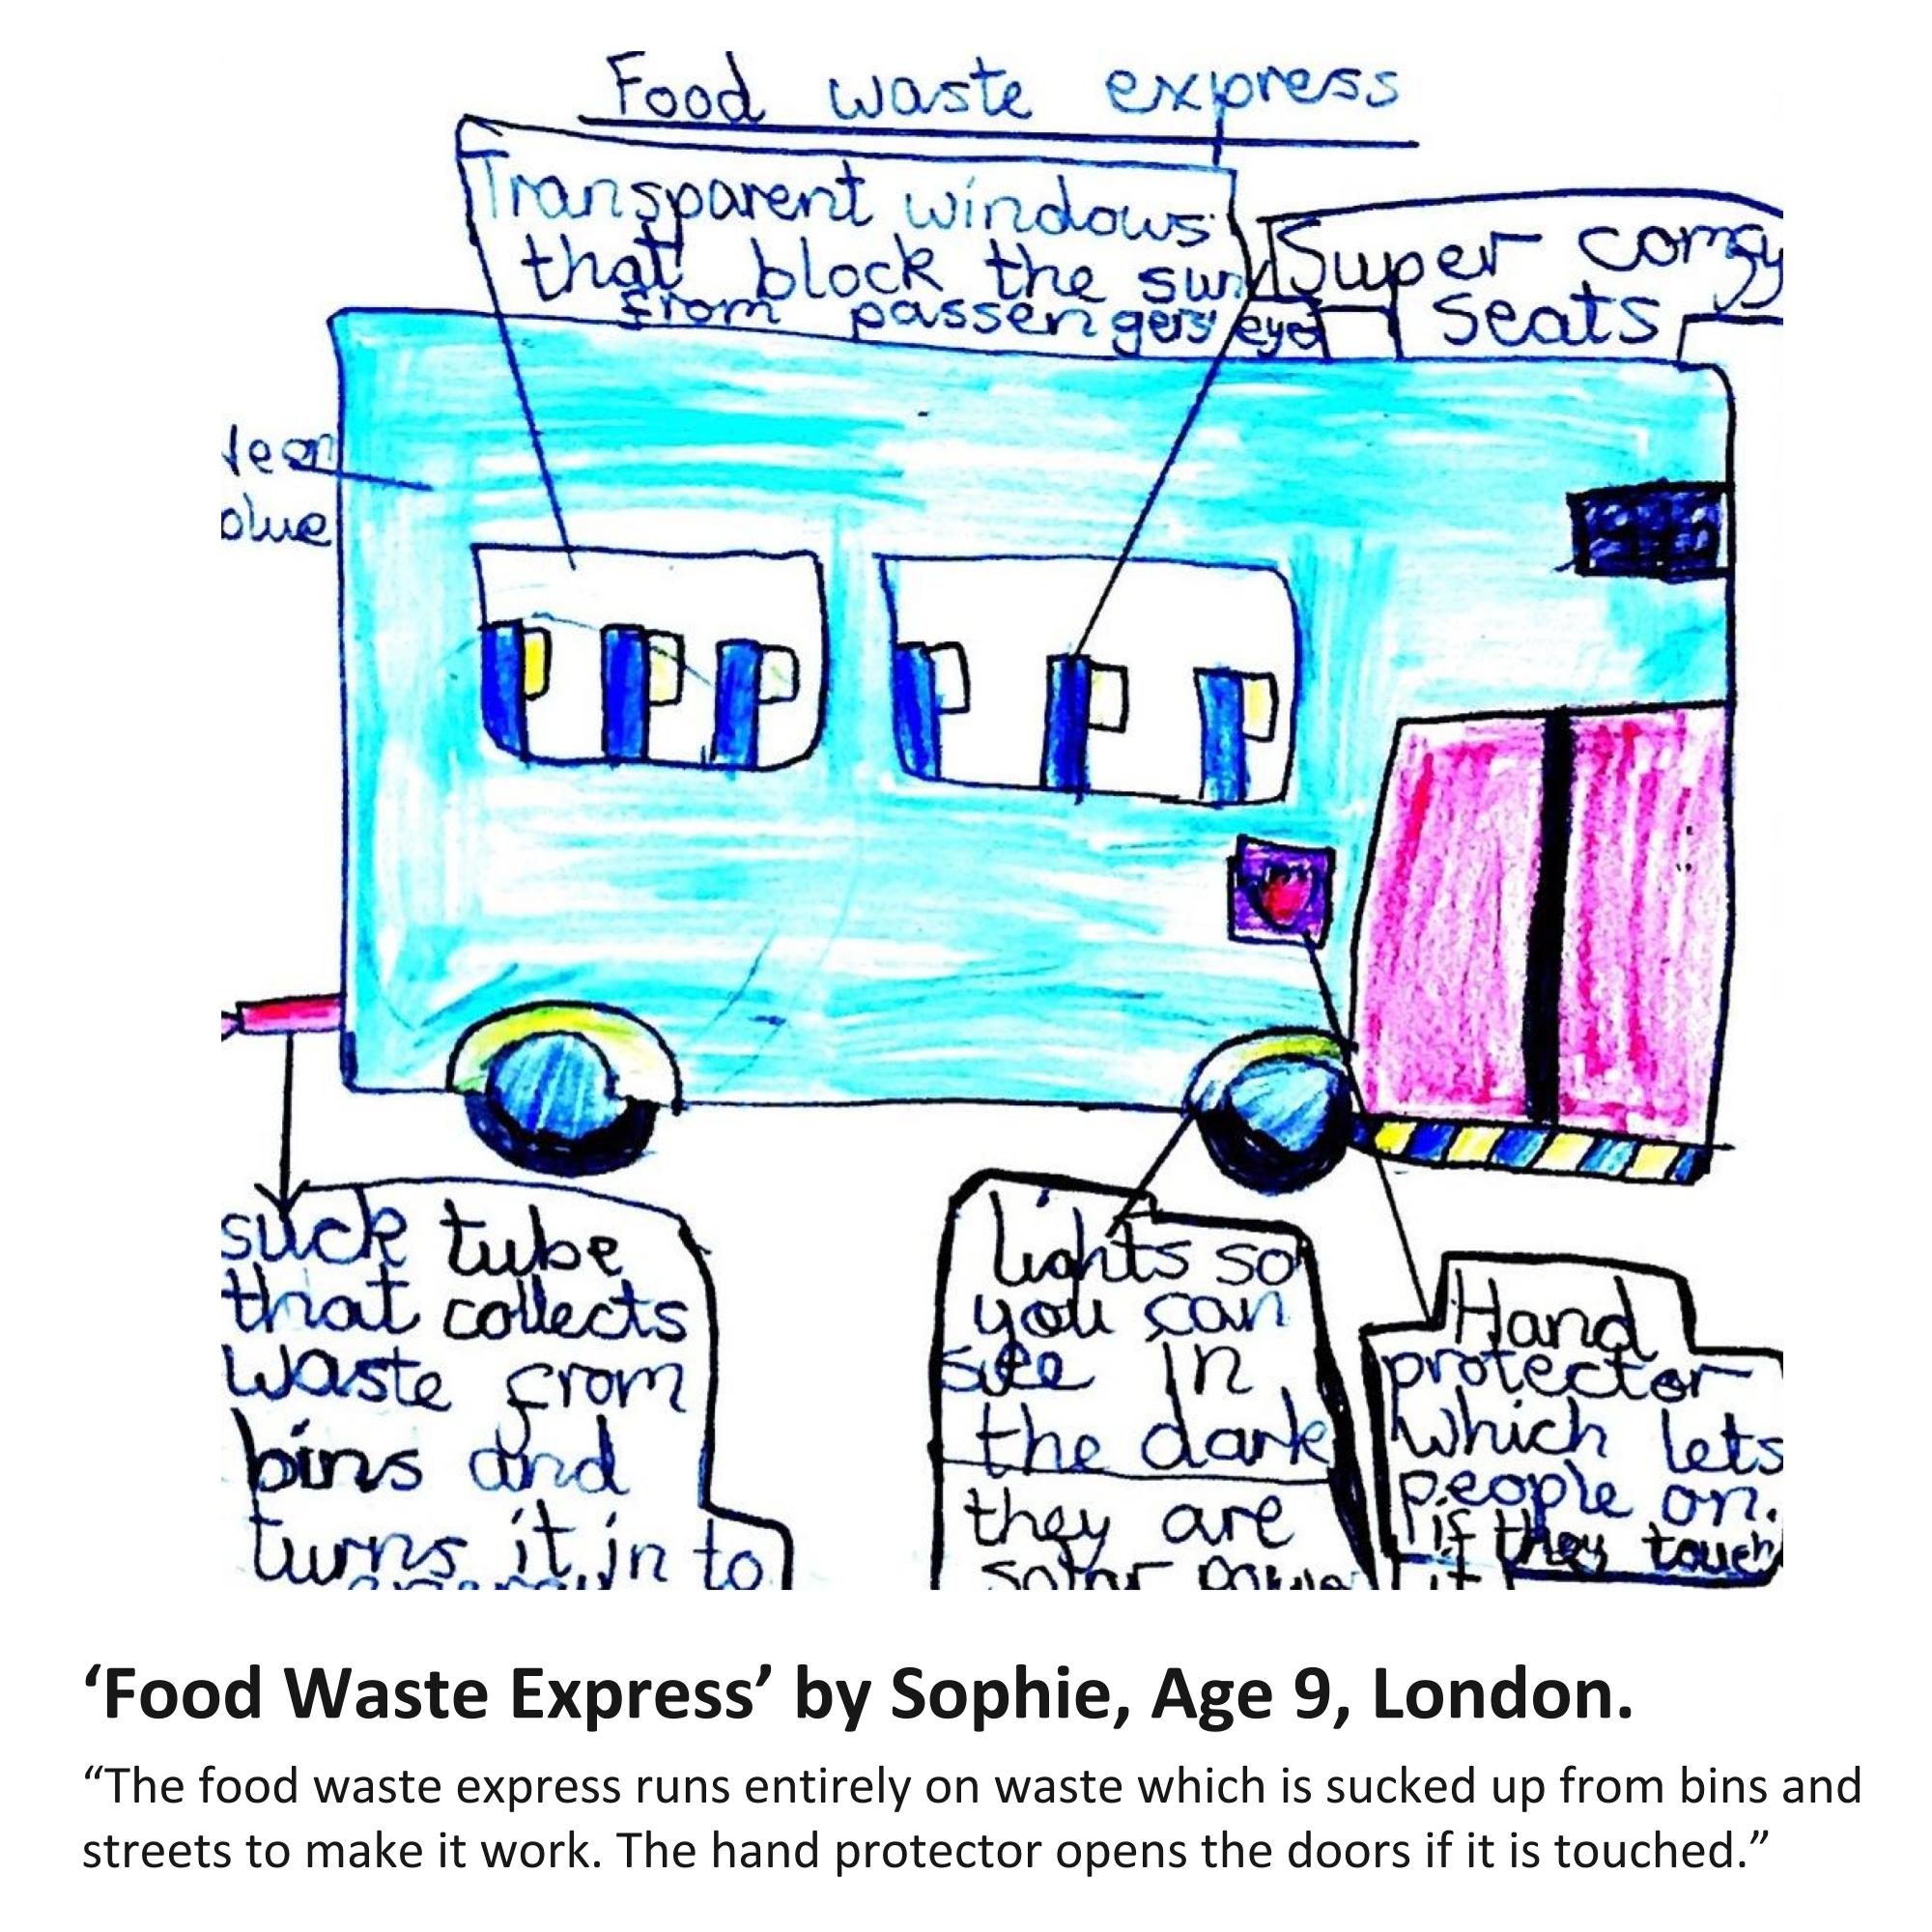 Food waste express
Transparent windows
that block the sun
from passengers' eyes
Super comfy
seats
blue
suck tube
that collects
waste from
bins and
turns it in to
energy
lights so
you can
see in
the dark
they are
solar power
Hand
protector
which lets
people on.
if they touch
it
‘Food Waste Express’ by Sophie, Age 9, London.
“The food waste express runs entirely on waste which is sucked up from bins and
streets to make it work. The hand protector opens the doors if it is touched.”